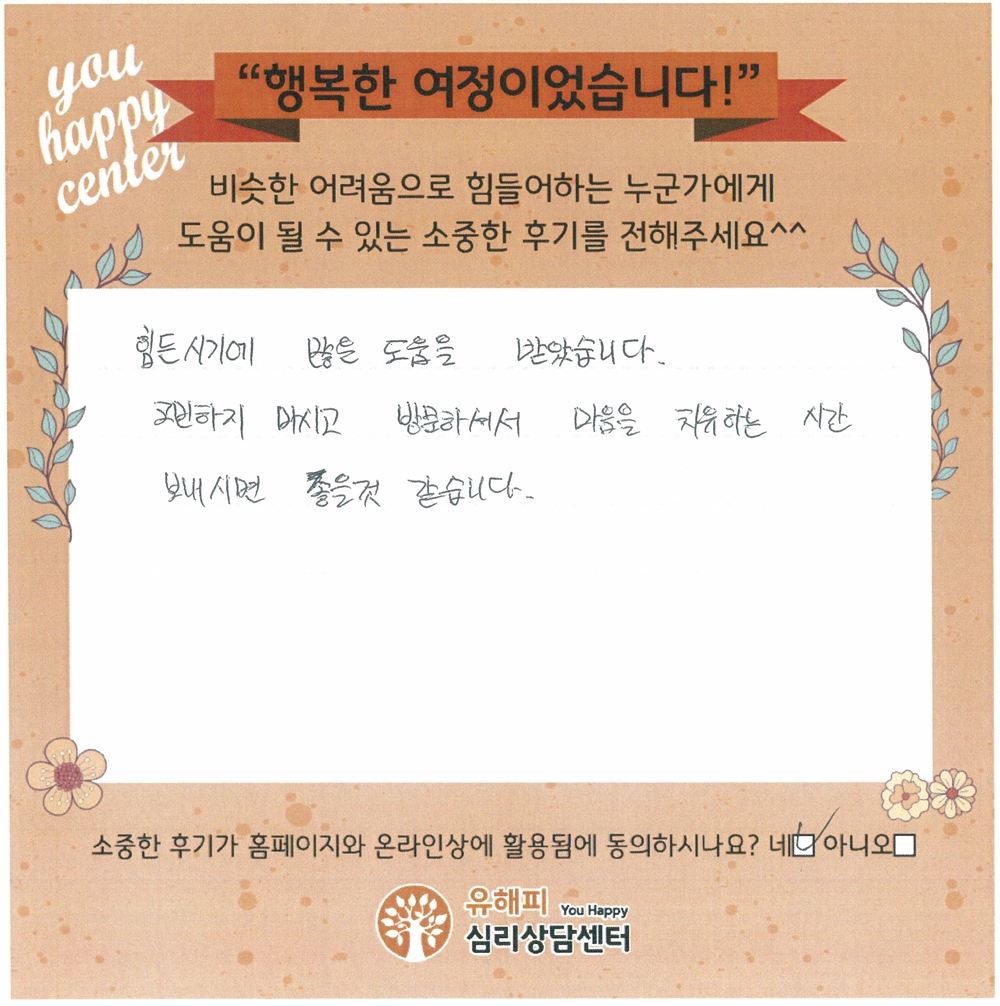 you
happy
center
“행복한 여정이었습니다!”
비슷한 어려움으로 힘들어하는 누군가에게
도움이 될 수 있는 소중한 후기를 전해주세요^^
힘든시기에 많은 도움을 받았습니다.
고민하지 마시고 방문하셔서 마음을 치유하는 시간
보내시면 좋을것 같습니다.
소중한 후기가 홈페이지와 온라인상에 활용됨에 동의하시나요? 네 아니오
유해피 You Happy
심리상담센터